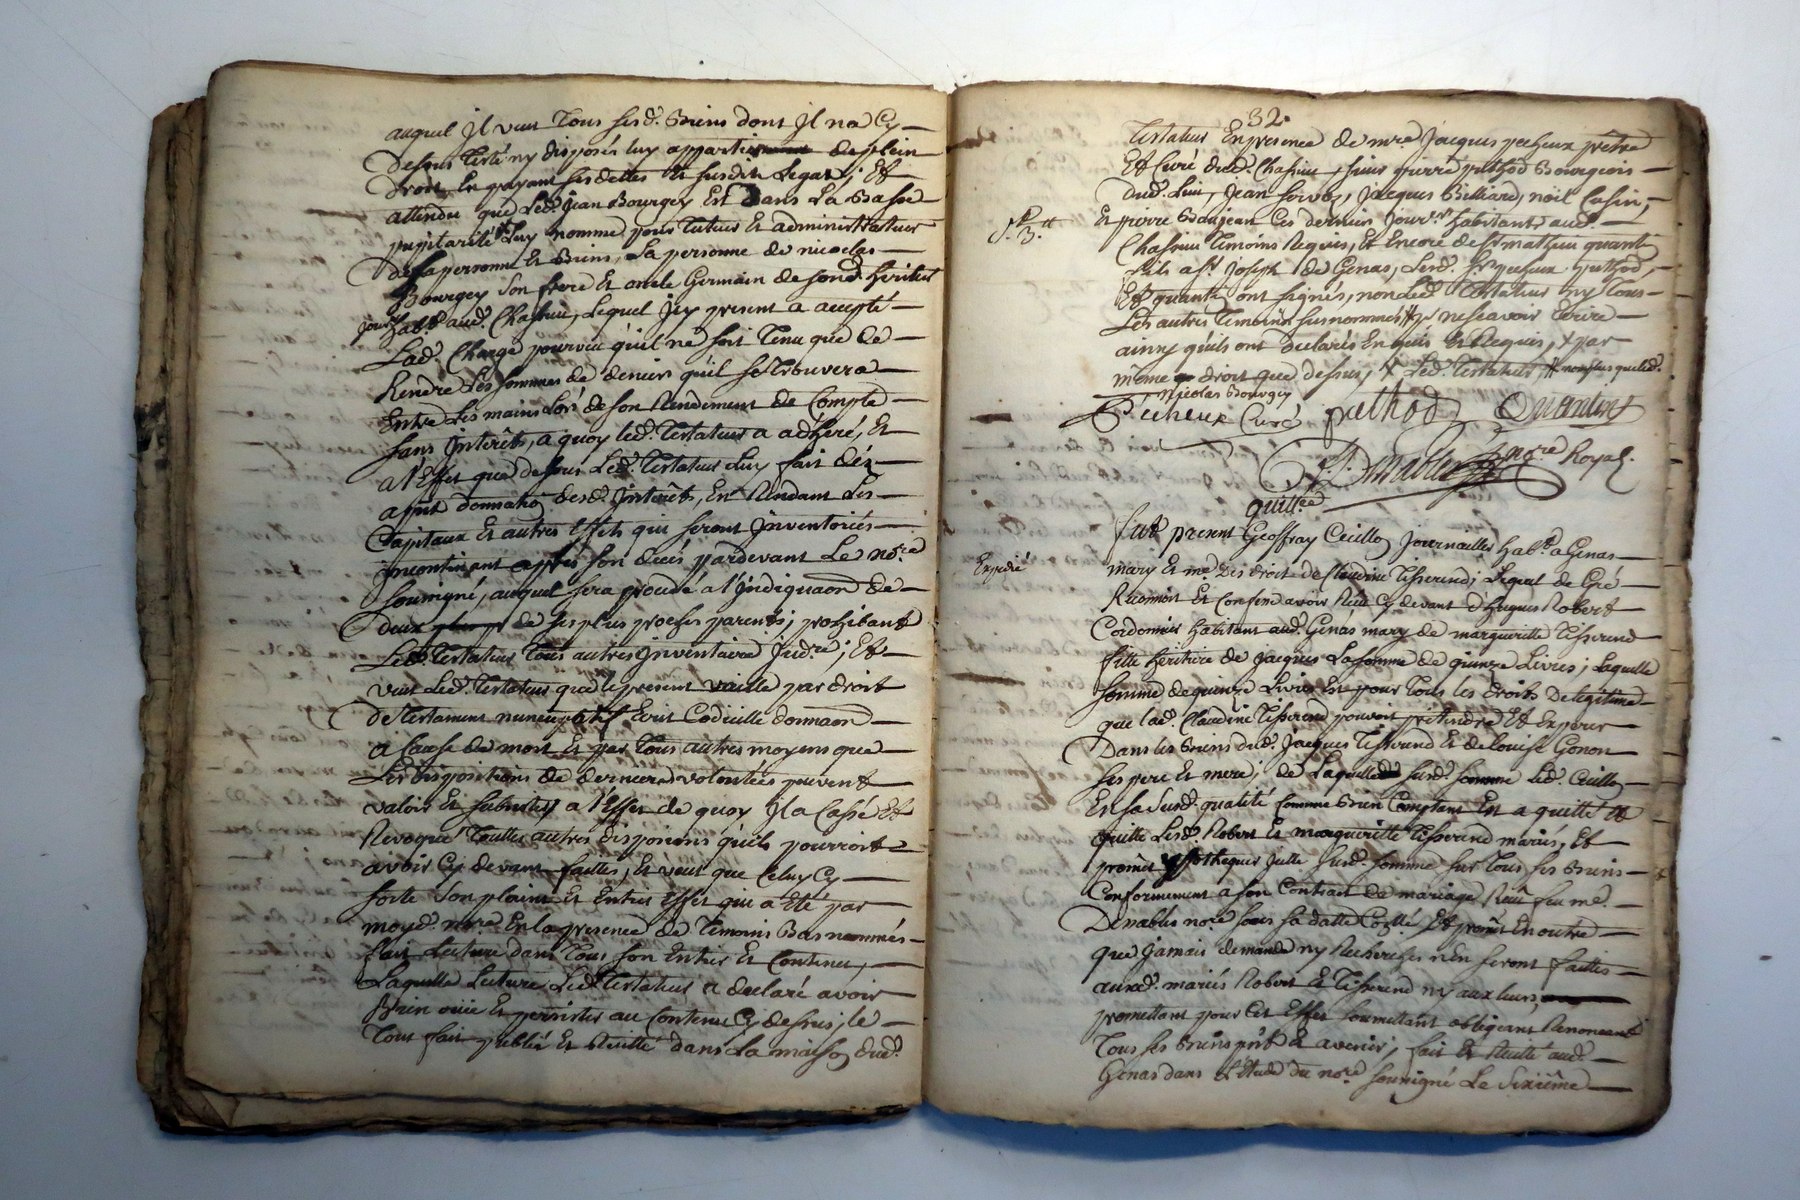 auquel Il veut Tous sesd. Biens dont Il na Cy
Dessus Testé ny disposés luy appartienne de plein
Droit, En payant ses dettes Et susdits Legats; Et
attendu que Led. Jean Bourgey Est Dans La Basse
pupilarité Luy nomme pour Tuteur Et administrateur
de sa personne Et Biens, La personne de nicolas
Bourgey son frere Et oncle Germain de sond. heritier
jour.er habt. aud. Chassieu, Lequel Icy present a accepté
Lad. Charge pourveu qu'il ne soit Tenu que de
Rendre Les sommes de deniers qu'il se trouvera
Entre Les mains Lors de son Rendement de Compte
sans Interêts, a quoy led. Testateur a adhéré, Et
a l'Effet que dessus Led. Testateur Luy fait dès
apnt donnation desd. Interêts, En Rendant Les
Capitaux Et autres Effets qui seront Inventoriés
Incontinant après son deces pardevant Le nore.
soussigné, auquel sera procedé a l'Indiquaon de
deux de ses plus proches parents; prohibant
Led. Testateur Tous autres Inventaire Judre.; Et
veut Led. Testateur que le present vaille par droit
de Testament nuncupatif Ecrit Codicille donnaon
a Cause de mort Et par Tous autres moyens que
Les dispositions de derniere volontées peuvent
valoir Et subsister a l'Effet de quoy Il a Cassé Et
Revoqué Touttes autres disposions qu'il pourroit
avoir Cy devant faittes, Et veut que Celuy Cy
sorte son plaint Et Entier Effet qui a Eté par
moyd. nore. En la presence de Temoins Bas nommés
fait Lecture dans Tout son Entier Et Contenu,
Laquelle Lecture Led. Testateur a declaré avoir
Bien ouie Et persister au Contenu Cy dessus; le
Tout fait publié Et Recitté dans La maison dud.
32.
Testateur En presence de mre Jacques pecheux prêtre
Et Curé dud. Chassieu, sieur pierre puthod Bourgeois
dud. Lieu, Jean servoz, Jacques Billiard, noël Casin,
Et pierre Baujean Ces derniers Jour.ers habitants aud.
Chassieu Temoins Requis, Et Encore de Sr. mathieu quantin
fils a Sr. Joseph de Genas, Lesd. Srs. pecheux puthod,
Et quantin ont signés, non Led. Testateur ny Tous
Les autres Temoins susnommés p. ne scavoir Ecrire
ainsy qu'ils ont declarés Enquis Et Requis, x par
même droit que dessus, x Led. Testateur, x
Nicolas Bourgey
Pecheux Curé puthod Quantin
Dmables nore. Royal.
quitt.ce
fut present Geoffray Cuillon Journaillier habt. a Genas
Expedié
mary Et me. des droits de Claudine Tisserand; Lequel de Gré
Reconnoit Et Confesse avoir Receu Cy devant d'hugues Robert
Cordonnier habitant aud. Genas mary de margueritte Tisserand
fille heritiere de Jacques La somme de quinze Livres; Laquelle
somme de quinze Livres Est pour Tous les droits De legitime
que lad. Claudine Tisserand pouvoit pretendre Et Esperer
Dans les Biens dud. Jacques Tisserand Et de louise Gonon
ses pere Et mere, de Laquelle susd. somme Led. Cuillon
En sa susd. qualité Comme Bien Comptant En a quitté Et
quitte Lesd. Robert Et margueritte Tisserand mariés, Et
promet ypothequer Jcelle susd. somme sur Tous ses Biens
Conformement a son Contrat de mariage Receu feu me.
Demables nore. sous sa datte Collé, Et promet En outre
que Jamais demande ny Recherches n'En seront faittes
auxd. mariés Robert Et Tisserand ny aux leurs,
promettant pour Cet Effet soumettant obligeant Renonceant
Tous ses Biens pnts. Et avenir; fait Et Recitté aud.
Genas dans L'Etude du nore. soussigné Le sixiême